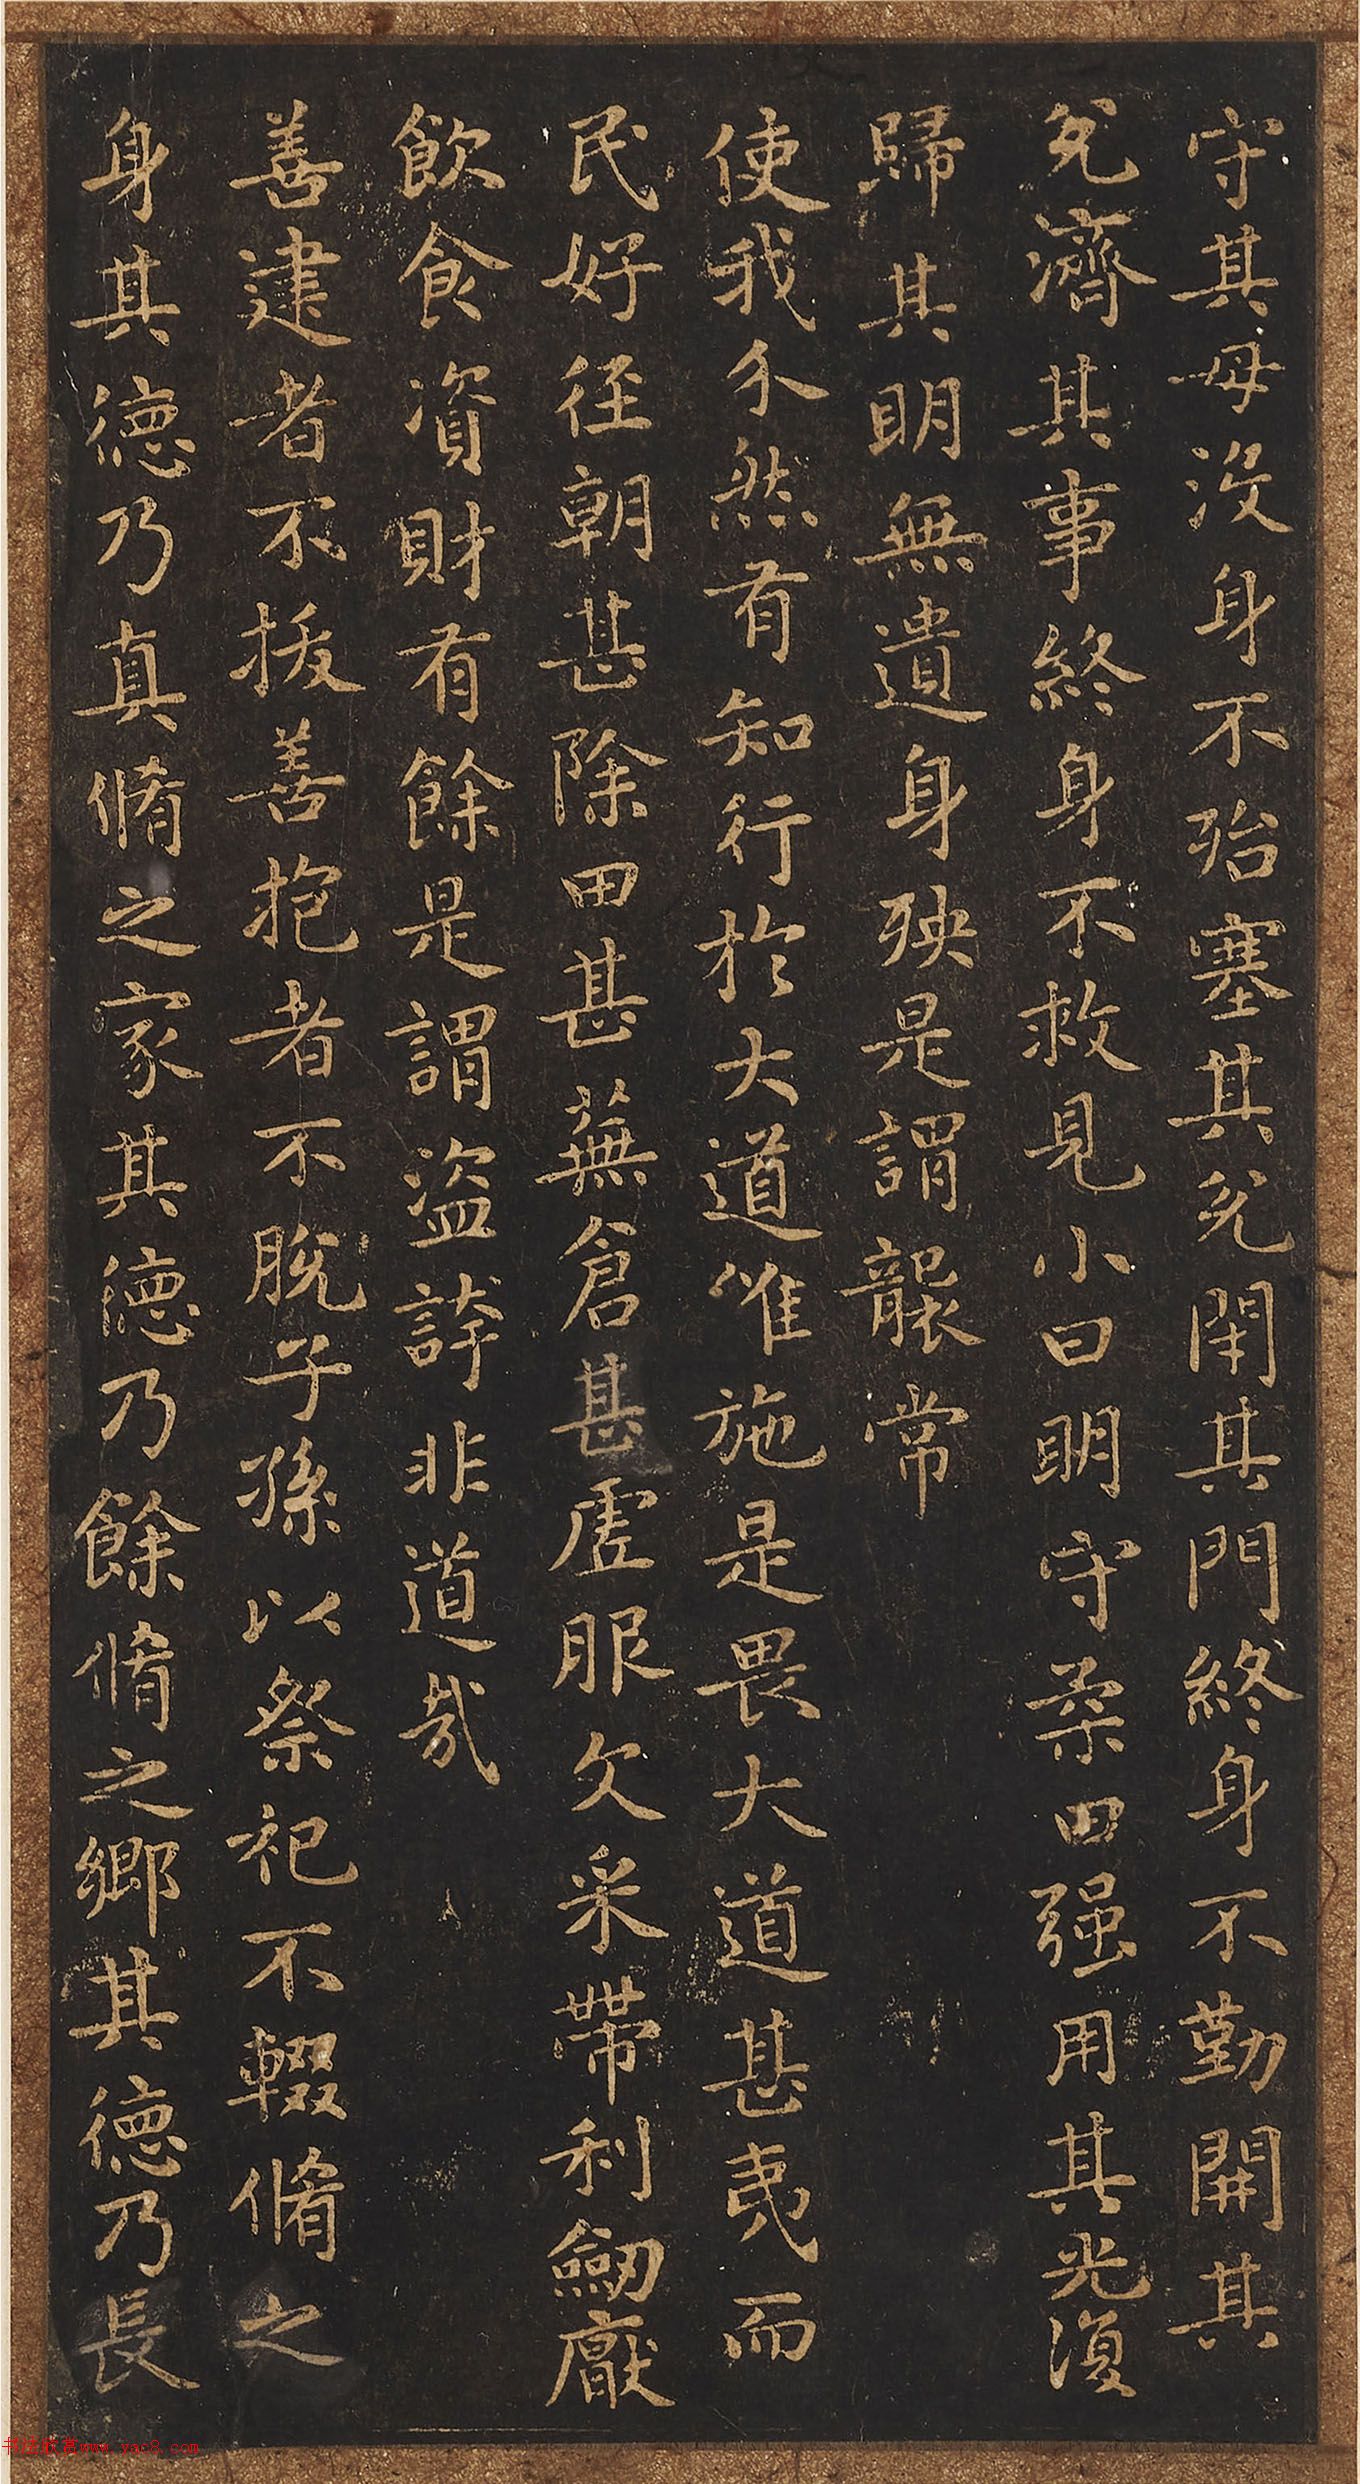 守其母没身不殆塞其兊閇其門終身不勤開其
兊濟其事終身不救見小曰明守柔曰强用其光復
歸其明無遺身殃是謂襲常
使我介然有知行於大道唯施是畏大道甚夷而
民好徑朝甚除田甚蕪倉甚虛服文采帶利劒厭
飲食資財有餘是謂盜誇非道哉
善建者不拔善抱者不脫子孫以祭祀不輟脩之
身其德乃真脩之家其德乃餘脩之鄉其德乃長
书法欣赏www.yac8.com